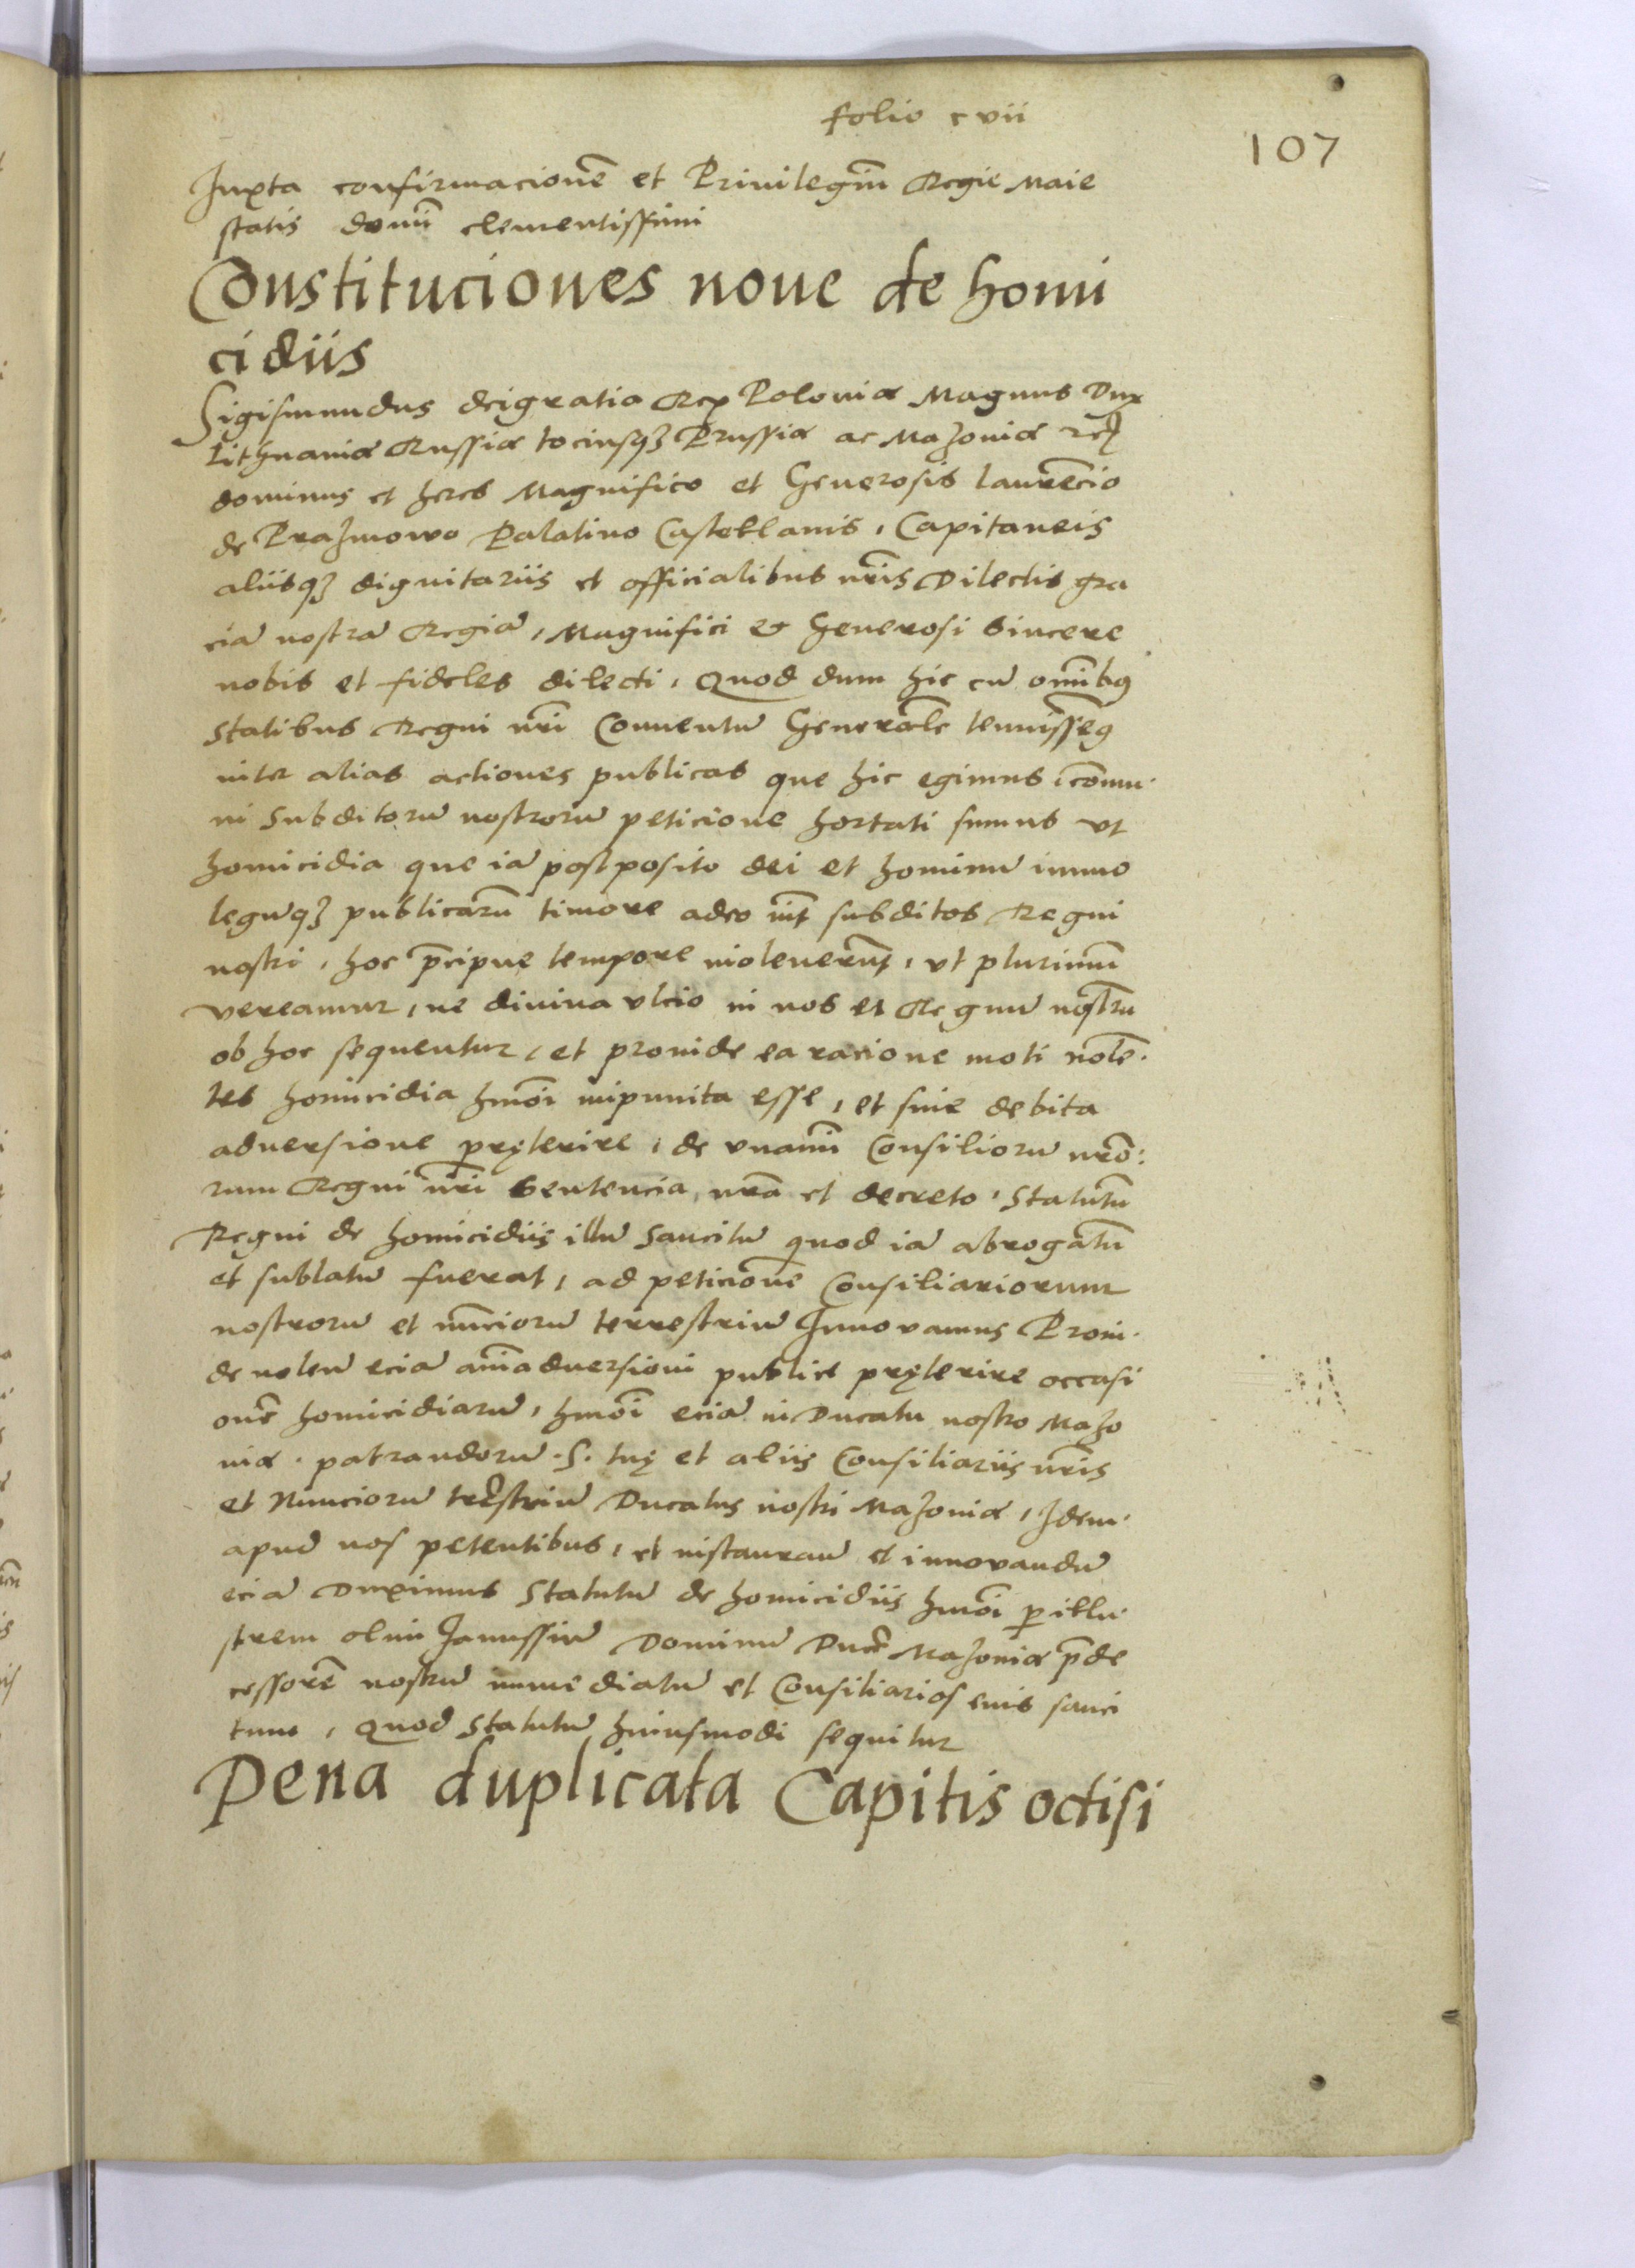 folio cvii
107
Juxta confirmacionē et Priuilegiū Regie Maie
statis domī clementissimi
Constituciones noue de homi
cidiis
Sigismundus dei gratia Rex Poloniæ Magnus Dux
Lithuaniæ Russiæ tociusqꝫ Prussiæ ac Mazouiæ etc
dominus et heres Magnifico et Generosis laurēcio
de Prazmowo Palatino Castellanis, Capitaneis
aliisqꝫ dignitariis et officialibus nr̄is Dilectis gra
ciā nostrā Regiā, Magnifici et Generosi sincere
nobis et fideles dilecti, Quod dum hic cū omībꝫ
statibus Regni nr̄i Conuentū Generale tenuissem9
inter alias actiones publicas que hic egimus, com̄u
ni subditorū nostrorū peticione hortati sumus vt
homicidia que iā postposito dei et hominū immo
legūqꝫ publicarū timore adeo int̄ subditos Regni
nostri, hoc p̄cipue tempore inoleuerūt, vt plurimū
vereamur, ne diuina vlcio in nos et Regnū nostrū
ob hoc sequentur, et prouide ea racione moti nolē
tes homicidia hm̄oi impunita esse, et sine debita
aduersione pręterire, de vnanī Consiliorū nr̄o
rum Regni nr̄i sentencia, nr̄a et decreto, Statutū
Regni de homicidiis illū sancitū quod iā abrogatū
et sublatū fuerat, ad peticionē Consiliariorum
nostrorū et nūnciorū terrestriū Innovamus Proui
de nolen̄ eciā anīaduersioni publice pręterire occasi
onē homicidiarū, hm̄oi eciā in Ducatu nostro Mazo
uiæ . patrandorū . S. tuę et aliis Consiliariis nr̄is
et Nunciorū terrēstriū Ducatus nostri Mazouiæ, Idem
apud nos petentibus, et instauran̄ et innovandū
eciā Duximus Statutū de homicidiis hm̄oi p illu
strem olim Janussiū Dominū Ducē Mazouiæ p̄de
cessorē nostrū immediatū et Consiliarios euis sanci
tum, Quod Statutū huiusmodi sequitur
Pena duplicata Capitis octisi